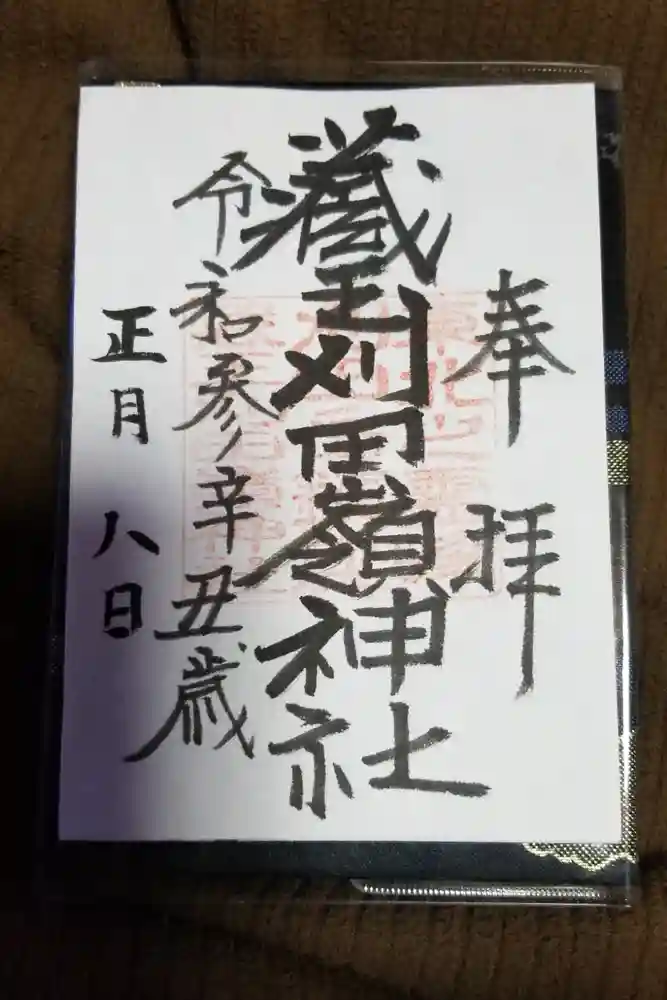 奉拝
藏王刈田嶺神社
令和参辛丑歳
正月八日